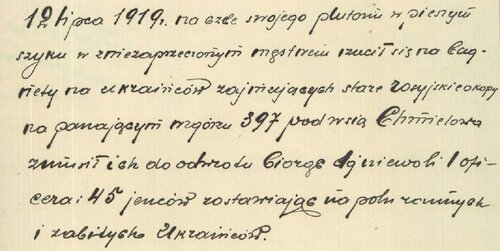 12 lipca 1919 r. na czele swojego plutonu w pieszym
szyku w niezaprzeczonym męstwem rzucił się na bag-
niety na Ukraińców zajmujących stare rosyjskie okopy
na panającym wzgórzu 397 pod wsią Chmielowa
zmusił ich do odwrotu biorąc do niewoli 1 ofi-
cera i 45 jeńców zostawiając na polu rannych
i zabitych Ukraińców.